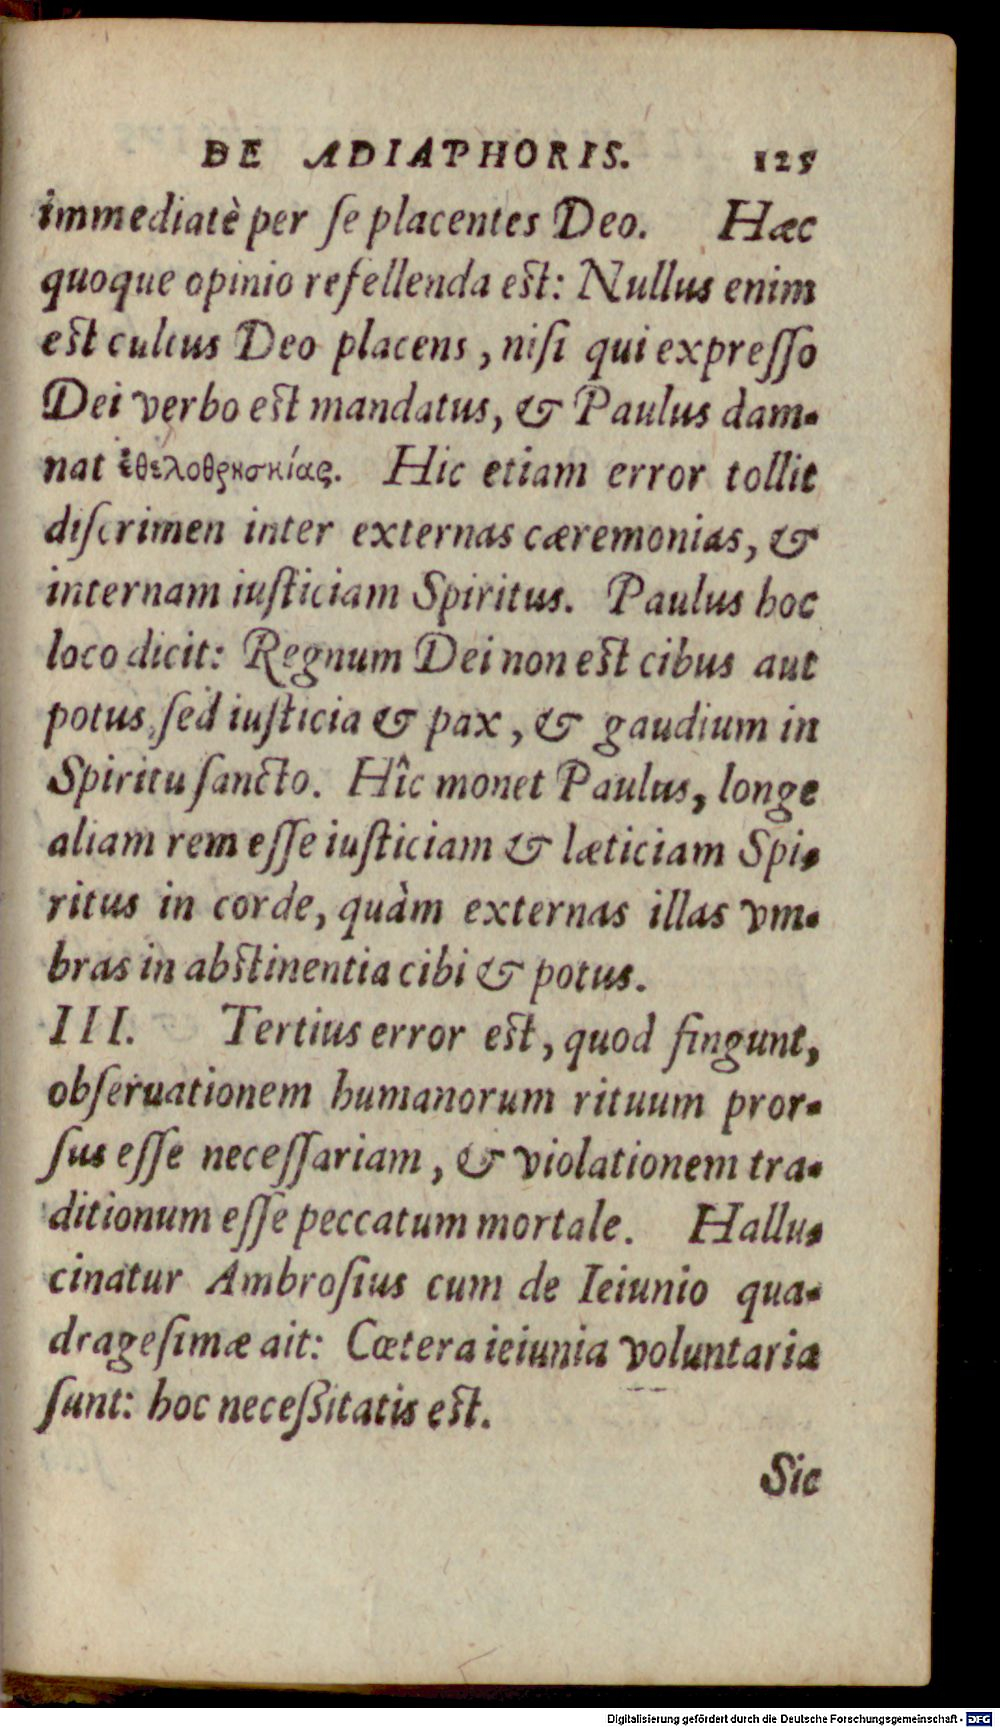 DE ADIAPHORIS. 125
immediatè per ſe placentes Deo. Hæc
quoque opinio refellenda est: Nullus enim
est cultus Deo placens, niſi qui expreſſo
Dei verbo est mandatus, & Paulus dam-
nat ἐθελοθρησκίας. Hic etiam error tollit
diſcrimen inter externas cæremonias, &
internam iuſticiam Spiritus. Paulus hoc
loco dicit: Regnum Dei non est cibus aut
potus, ſed iuſticia & pax, & gaudium in
Spiritu ſancto. Hîc monet Paulus, longe
aliam rem eſſe iuſticiam & læticiam Spi-
ritus in corde, quàm externas illas vm-
bras in abstinentia cibi & potus.
III. Tertius error est, quod fingunt,
obſeruationem humanorum rituum pror-
ſus eſſe neceſſariam, & violationem tra-
ditionum eſſe peccatum mortale. Hallu-
cinatur Ambroſius cum de Ieiunio qua-
drageſimæ ait: Cœtera ieiunia voluntaria
ſunt: hoc neceßitatis est.
Sic
Digitalisierung gefördert durch die Deutsche Forschungsgemeinschaft - DFG